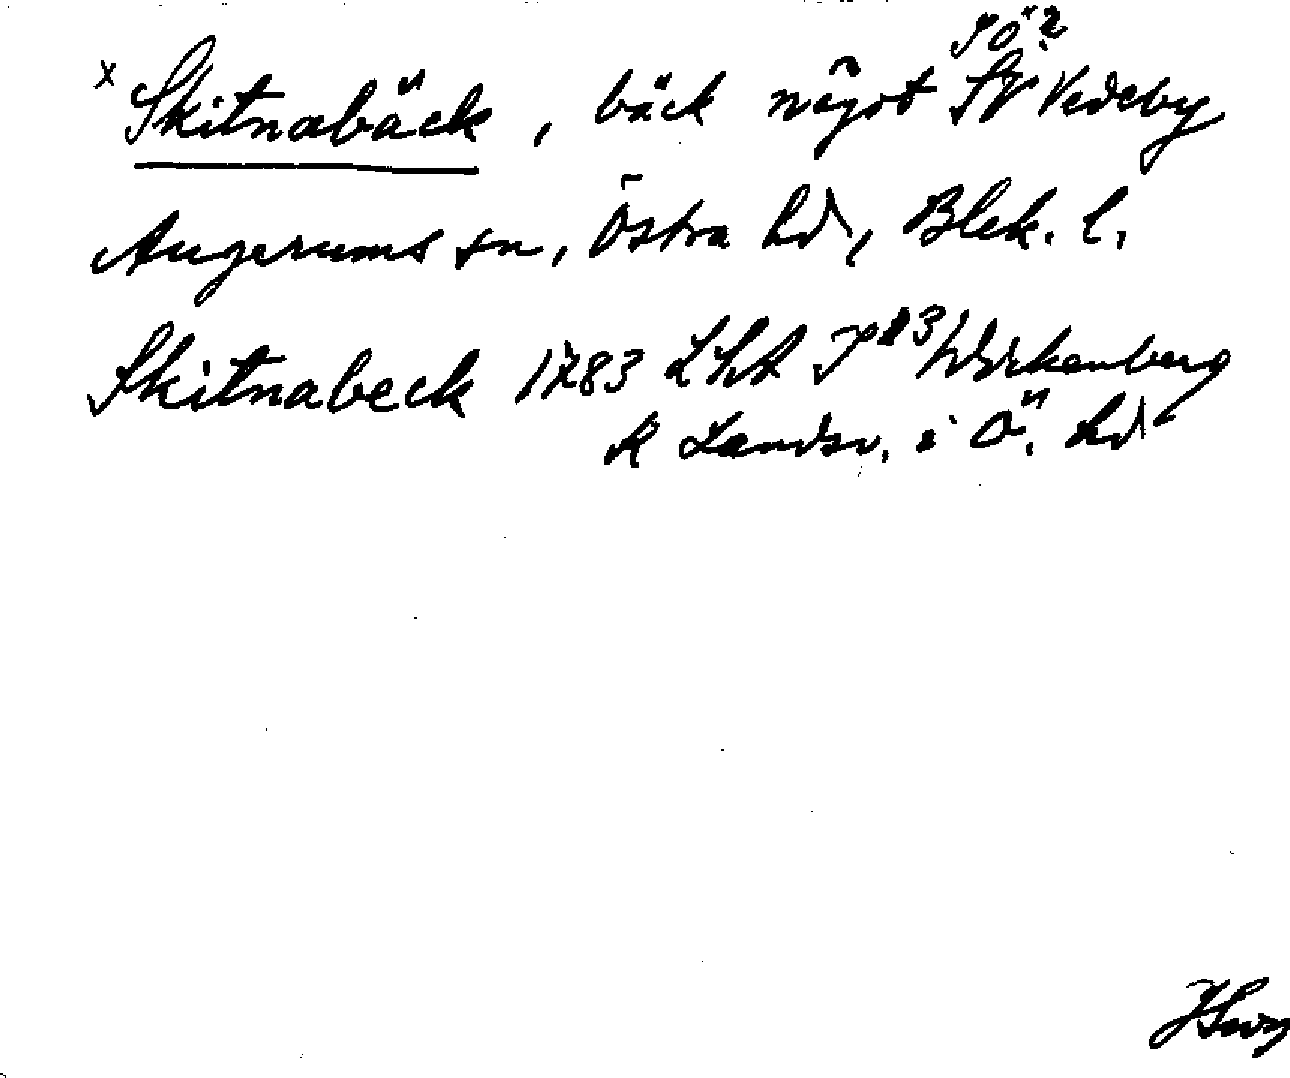 x Skitnabäck, bäck något SÖ?
SV Vedeby
Augerums sn, Östra hd, Blek. l.
Skitnabeck 1783 LHA
K Landsv. i Ö. hd